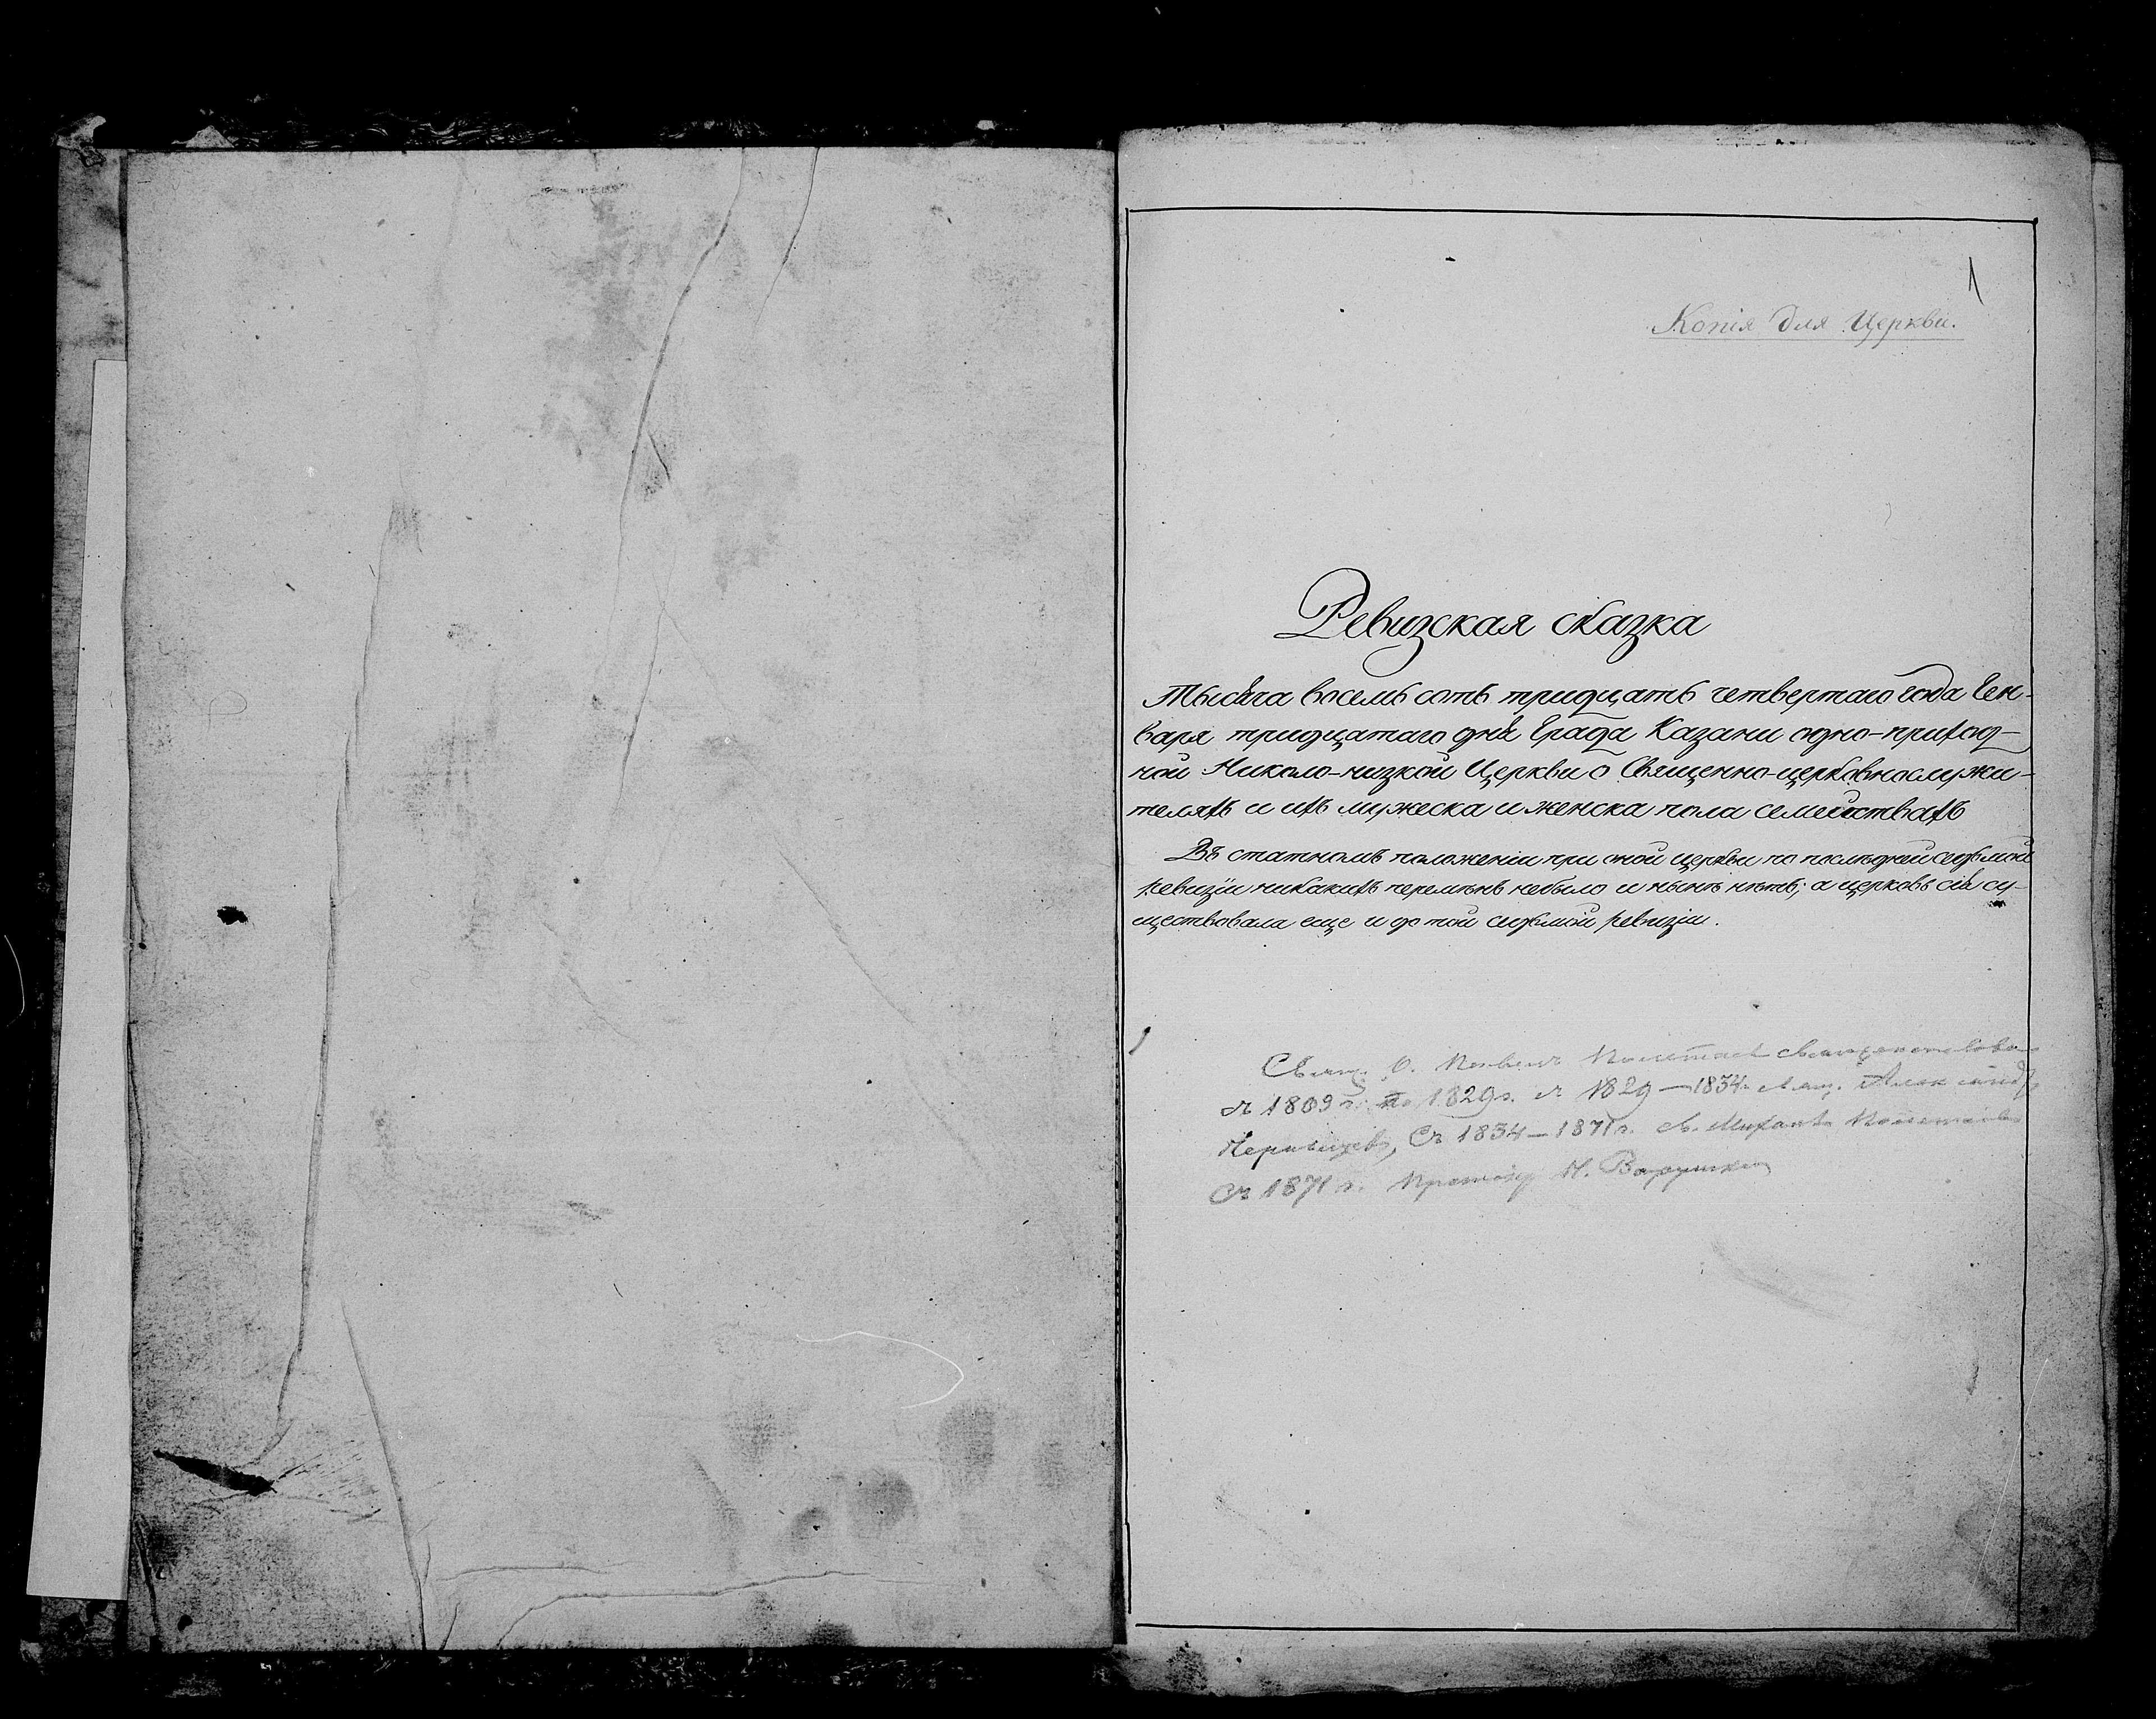 1
Копія для Церкви.
Ревизская сказка
Тысяча восемь сотъ тридцать четвертаго года Ген-
варя тридцатаго дня Града Казани одно-приход-
ной Николо-низкой Церкви о Священно-церковнослужи-
теляхъ и ихъ мужеска и женска пола семействахъ
Въ статномъ положеніи при оной церкви по последней седьмой
ревизіи никакихъ перемѣнъ небыло и нынѣ нѣтъ; а церковь сія су-
ществовала еще и до той седьмой ревизіи.
Свящ. О.
съ 1809 г. по 1829 г. съ 1829 — 1834 свящ. Александръ
Съ 1834 — 1871 г. св. Михаилъ
Съ 1871 г.